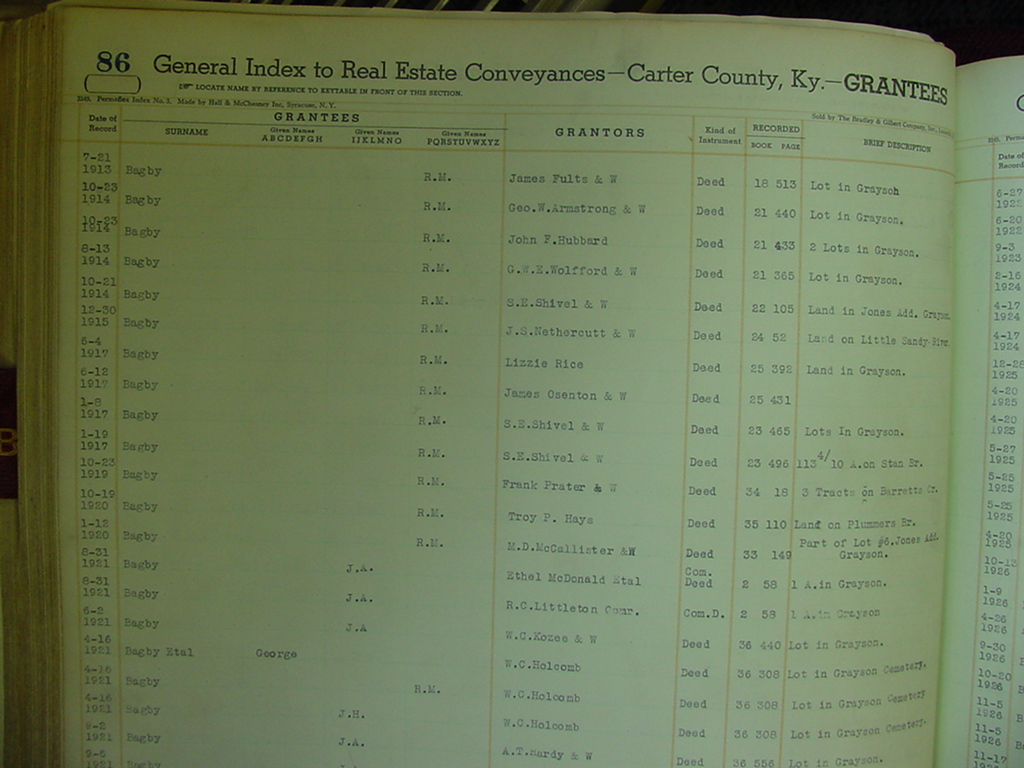 86 General Index to Real Estate Conveyances—Carter County, Ky.—GRANTEES
LOCATE NAME BY REFERENCE TO KEYTABLE IN FRONT OF THIS SECTION.
Permaflex Index No. 3. Made by Hall & McChesney Inc, Syracuse, N. Y. Sold by The Bradley & Gilbert Company, Inc.
Date of Record GRANTEES GRANTORS Kind of Instrument RECORDED BRIEF DESCRIPTION
SURNAME Given Names ABCDEFGH Given Names IJKLMNO Given Names PQRSTUVWXYZ BOOK PAGE
7-21 1913 Bagby R.M. James Fults & W Deed 18 513 Lot in Grayson
10-23 1914 Bagby R.M. Geo.W.Armstrong & W Deed 21 440 Lot in Grayson.
10-23 1914 Bagby R.M. John F.Hubbard Deed 21 433 2 Lots in Grayson.
8-13 1914 Bagby R.M. G.W.E.Wolfford & W Deed 21 365 Lot in Grayson.
10-21 1914 Bagby R.M. S.E.Shivel & W Deed 22 105 Land in Jones Add. Grayson.
12-30 1915 Bagby R.M. J.S.Nethercutt & W Deed 24 52 Land on Little Sandy River.
5-4 1917 Bagby R.M. Lizzie Rice Deed 25 392 Land in Grayson.
6-12 1917 Bagby R.M. James Osenton & W Deed 25 431
1-8 1917 Bagby R.M. S.E.Shivel & W Deed 23 465 Lots In Grayson.
1-19 1917 Bagby R.M. S.E.Shivel & W Deed 23 496 113 4/10 A.on Stan Br.
10-23 1919 Bagby R.M. Frank Prater & W Deed 34 18 3 Tracts on Barretts Cr.
10-19 1920 Bagby R.M. Troy P. Hays Deed 35 110 Land on Plummers Br.
1-12 1920 Bagby R.M. M.D.McCallister &W Deed 33 149 Part of Lot #6.Jones Add. Grayson.
8-31 1921 Bagby J.A. Ethel McDonald Etal Com. Deed 2 58 1 A.in Grayson.
8-31 1921 Bagby J.A. R.C.Littleton Comr. Com.D. 2 58 1 A.in Grayson
6-2 1921 Bagby J.A W.C.Kozee & W Deed 36 440 Lot in Grayson.
4-16 1921 Bagby Etal George W.C.Holcomb Deed 36 308 Lot in Grayson Cemetery.
4-16 1921 Bagby R.M. W.C.Holcomb Deed 36 308 Lot in Grayson Cemetery
4-16 1921 Bagby J.H. W.C.Holcomb Deed 36 308 Lot in Grayson Cemetery.
9-2 1921 Bagby J.A. A.T.Hardy & W Deed 36 556 Lot in Grayson.
9-6 1921 Bagby
Date of
6-27
6-20 1922
9-3 1923
2-16 1924
4-17 1924
4-17 1924
12-28 1925
4-20 1925
4-20 1925
5-27 1925
5-25 1925
5-25 1925
4-20 1925
1926
1-9 1926
4-26 1926
9-30 1926
10-20 1926
11-5 1926
11-5 1926
11-17